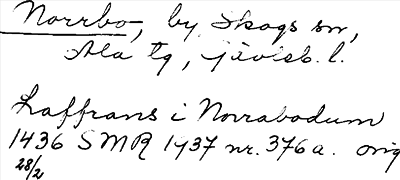 Norrbo, by Skogs sn,
Ala tg, Jävlsb. l.
Laffrans i Norrabodum
1436 SMR 1437 nr. 376a. orig
28/2